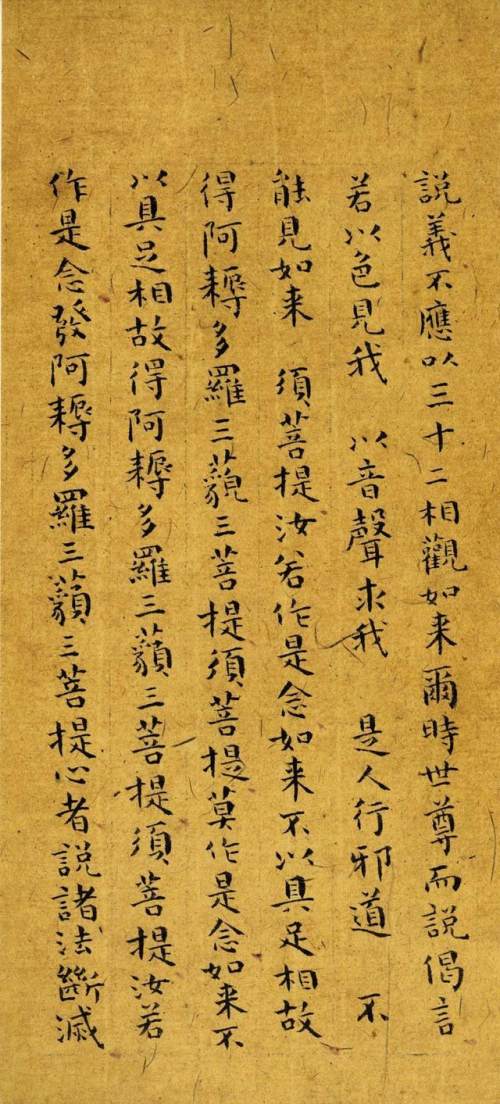 説義不應以三十二相觀如来爾時世尊而説偈言
若以色見我 以音聲求我 是人行邪道 不
能見如来 須菩提汝若作是念如来不以具足相故
得阿耨多羅三藐三菩提須菩提莫作是念如来不
以具足相故得阿耨多羅三藐三菩提須菩提汝若
作是念發阿耨多羅三藐三菩提心者説諸法斷滅